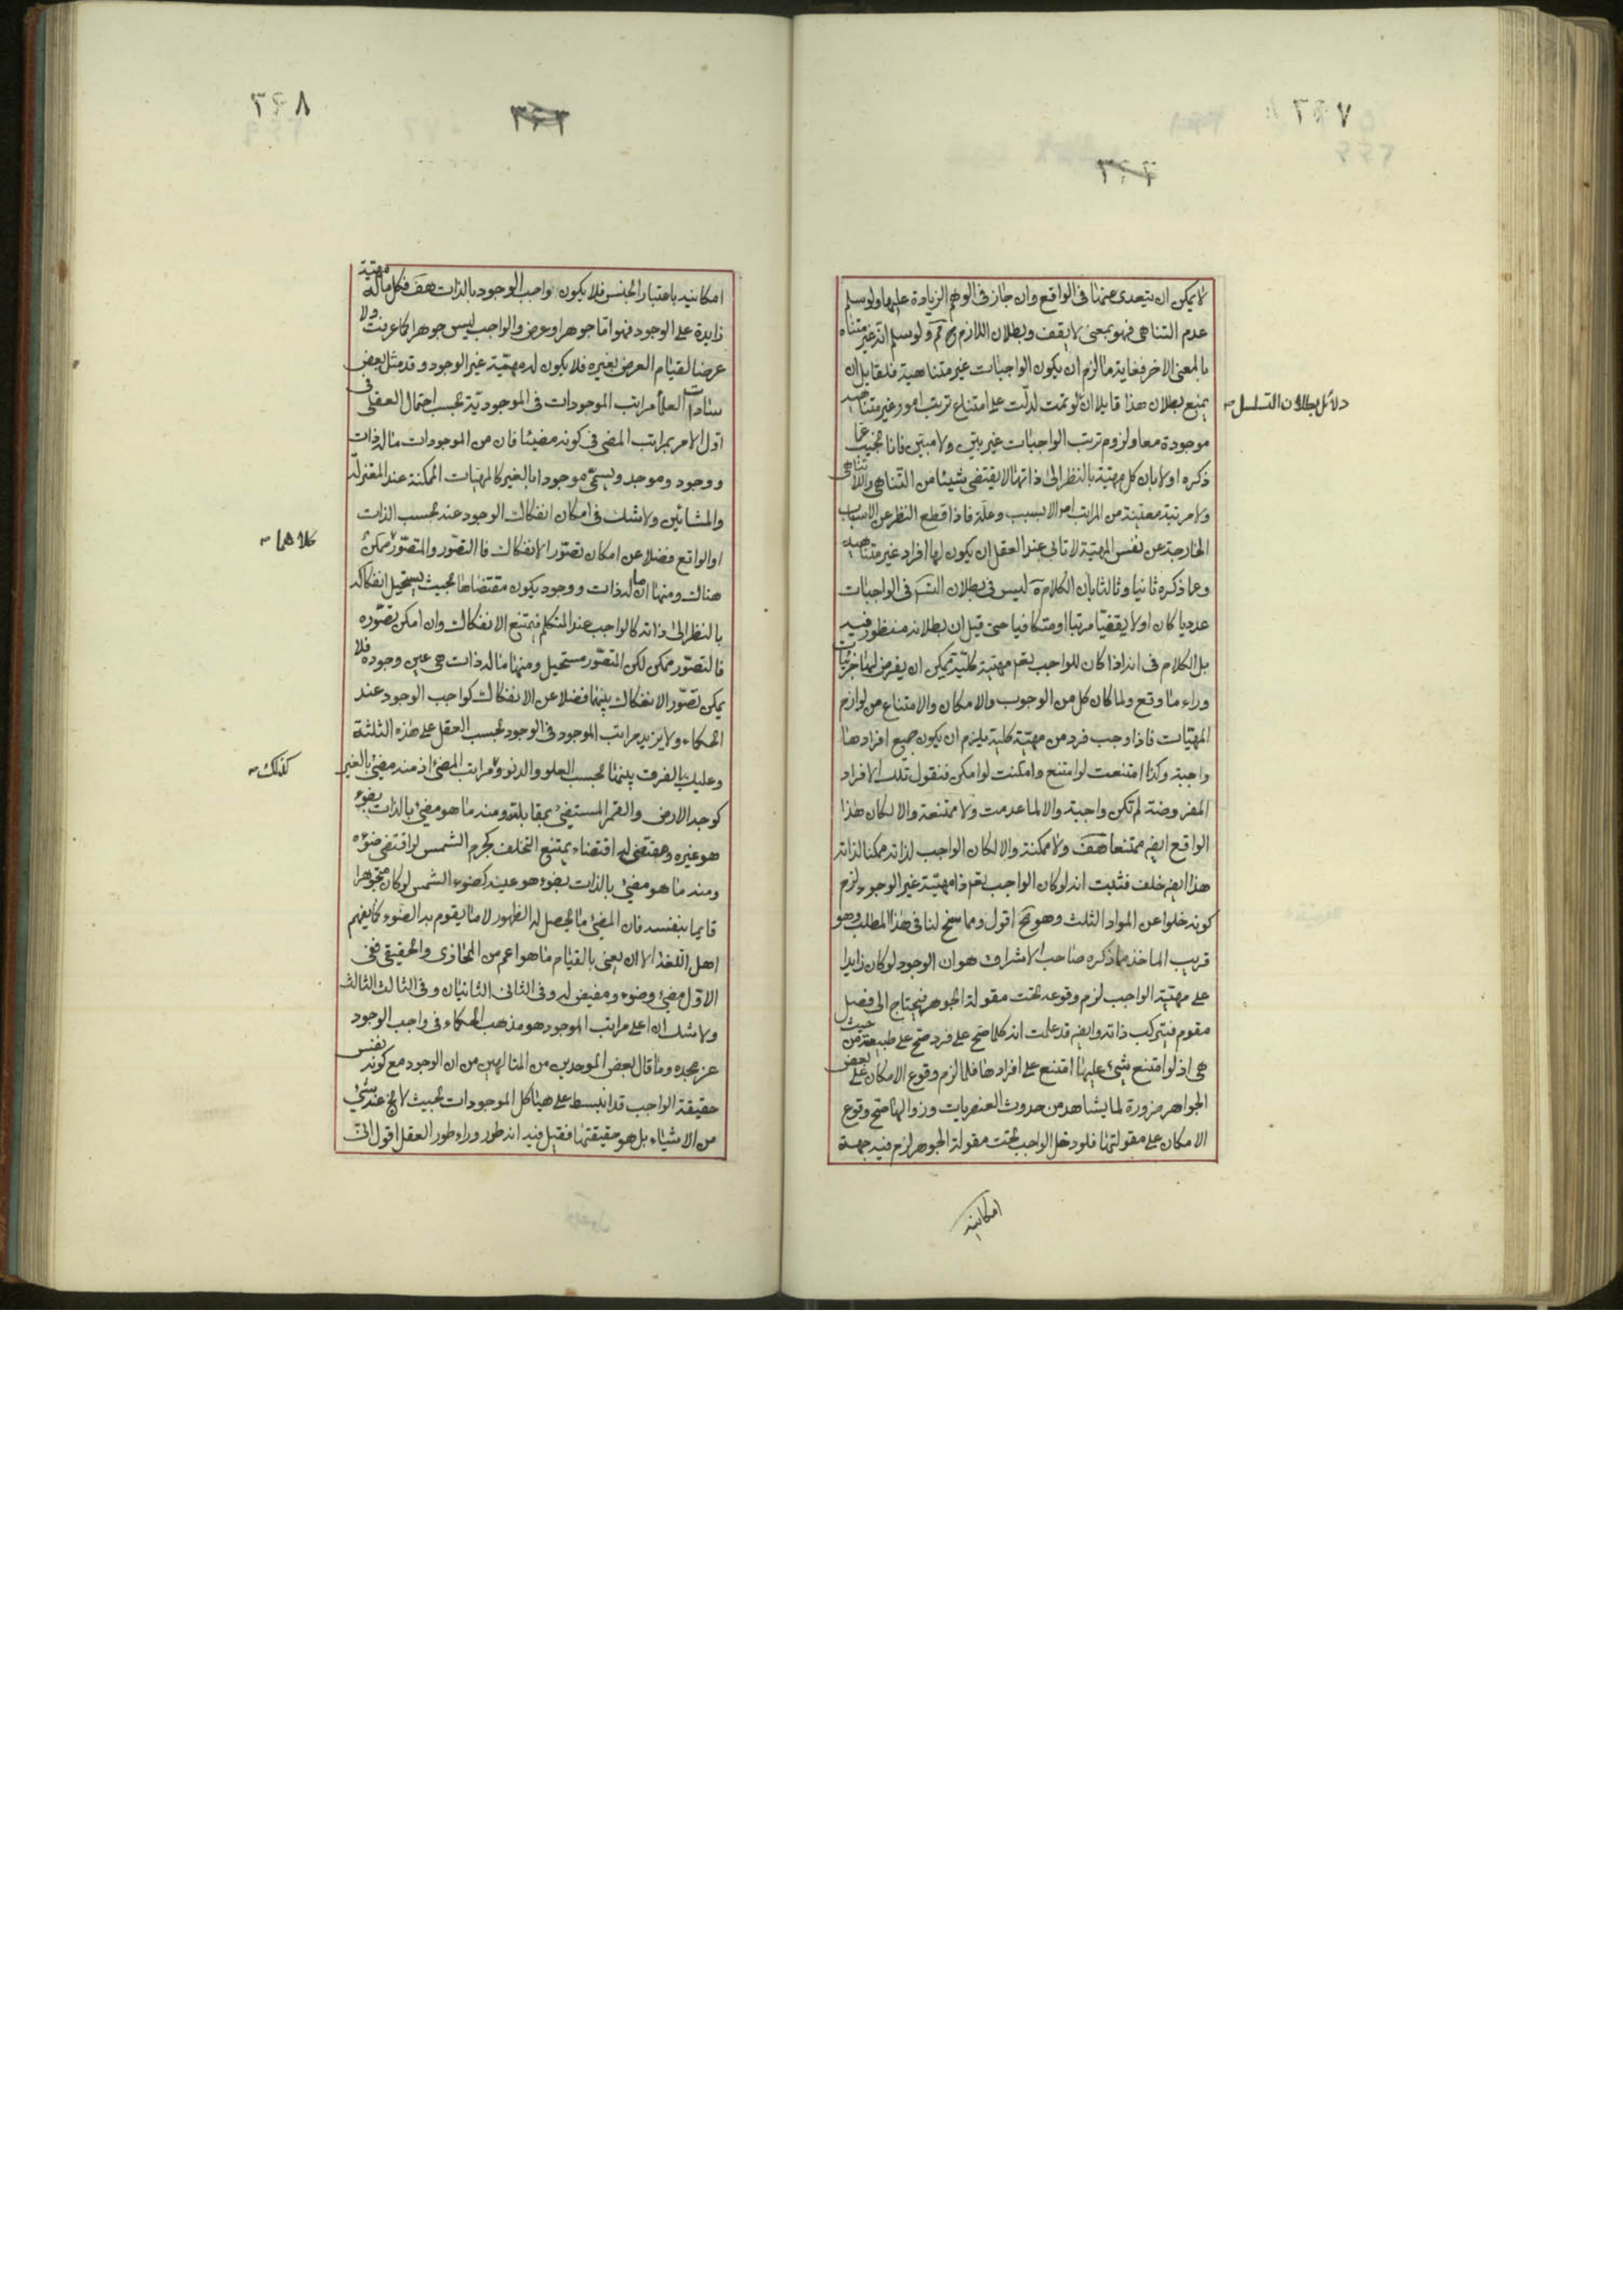 ٣٩٧
٣٩٦
لا يمكن ان يتعدى عنها فى الواقع وان جاز فى الوهم الزيادة عليها ولو سلم
عدم التناهى فهو بمعنى لا يقف وبطلان اللازم ح مم ولو سلم انه غير متناه
بالمعنى الاخر فغاية ما لزم ان يكون الواجبات غير متناهية فلقايل ان
يمنع بطلان هذا قايلا ان لو تمت لدلت على امتناع ترتب امور غير متناهية
دلائل بطلان التسلسل
موجودة معا ولزوم ترتب الواجبات غير بين ولا مبين فانا نجيب عما
ذكره اولا بان كل مهية بالنظر الى ذاتها لا يقتضى شيئا من التناهى واللاتناهى
ولا مرتبة معينة من المراتب اصلا الا بسبب وعلة فاذا قطع النظر عن الاسباب
الخارجة عن نفس المهية لا تابى عند العقل ان يكون لها افراد غير متناهية
وعما ذكره ثانيا وثالثا بان الكلام ليس فى بطلان التس فى الواجبات
عدديا كان او لا يقفيا مرتبا او متكافيا حتى قيل ان بطلانه منظور فيه
بل الكلام فى انه اذا كان للواجب تعم مهية كلية يمكن ان يفرض لها جزئيات
وراء ما وقع ولما كان كل من الوجوب والامكان والامتناع من لوازم
المهيات فاذا وجب فرد من مهية كلية يلزم ان يكون جميع افرادها
واجبة وكذا امتنعت لو امتنع وامكنت لو امكن فنقول تلك الافراد
المفروضة لم تكن واجبة والا لما عدمت ولا ممتنعة والا لكان هذا
الواقع ايضم ممتنعا هف ولا ممكنة والا لكان الواجب لذاته ممكنا لذاته
هذا ايضم خلف فثبت انه لو كان الواجب تعم ذا مهية غير الوجود لزم
كونه خلوا عن المواد الثلث وهو مح اقول ومما سنح لنا فى هذا المطلب وهو
قريب الماخذ مما ذكره صاحب الاشراق هو ان الوجود لو كان زايدا
على مهية الواجب لزم وقوعه تحت مقولة الجوهر فيحتاج الى فصل
مقوم فيتركب ذاته وايضم قد علمت انه كلما صح على فرد صح على طبيعته من حيث
هى اذ لو امتنع شئ عليها امتنع على افرادها فلما لزم وقوع الامكان على بعض
الجواهر ضرورة لما يشاهد من حدوث العنصريات وزوالها صح وقوع
الامكان على مقولتها فلو دخل الواجب تحت مقولة الجوهر لزم فيه جهة
امكانية
٣٩٨
امكانية باعتبار الجنس فلا يكون واجب الوجود بالذات هف فكل ما له مهية
زايدة على الوجود فهو اما جوهر او عرض والواجب ليس جوهرا كما عرفت ولا
عرضا لقيام العرض بغيره فلا يكون له مهية غير الوجود وقد مثل بعض
سادات العلما مراتب الموجودات فى الموجودية بحسب احتمال العقلى فى
اول الامر بمراتب المضى فى كونه مضيئا فان من الموجودات ما له ذات
ووجود وموجد ويسمى موجودا بالغير كالمهيات الممكنة عند المعتزلة
والمشائين ولا شك فى امكان انفكاك الوجود عنه بحسب الذات
او الواقع فضلا عن امكان تصور الانفكاك فالتصور والمتصور ممكن
كلاهما
هناك ومنها ما له ذات ووجود يكون مقتضاها بحيث يستحيل انفكاكه
بالنظر الى ذاته كالواجب عند المتكلم فيمتنع الانفكاك وان امكن تصوره
فالتصور ممكن لكن المتصور مستحيل ومنها ما له ذات هى عين وجوده فلا
يمكن تصور الانفكاك بينهما فضلا عن الانفكاك كواجب الوجود عند
الحكماء ولا يزيد مراتب الموجود فى الوجود بحسب العقل على هذه الثلثة
وعليك بالفرق بينها بحسب العلو والدنو ومراتب المضئ اذ منه مضئ بالغير
كذلك
كوجه الارض والقمر المستضئ بمقابلته ومنه ما هو مضئ بالذات بضوء
هو غيره ومقتضى له اقتضاء يمتنع التخلف كجرم الشمس لو اقتضى ضوءه
ومنه ما هو مضئ بالذات بضوء هو عينه كضوء الشمس لو كان متجوهرا
قايما بنفسه فان المضئ ما يحصل له الظهور لا ما يقوم به الضوء كما يفهم
اهل اللغة الا ان يعنى بالقيام ما هو اعم من المجازى والحقيقى ففى
الاول مضئ وضوء ومفيض له وفى الثانى الثانيان وفى الثالث الثالث
ولا شك ان اعلى مراتب الموجود هو مذهب الحكماء فى واجب الوجود
عز مجده وما قال بعض الموحدين من المتالهين من ان الوجود مع كونه نفس
حقيقة الواجب قد انبسط على هياكل الموجودات بحيث لا يخ عنه شئ
من الاشياء بل هو حقيقتها فقيل فيه انه طور وراء طور العقل اقول انى